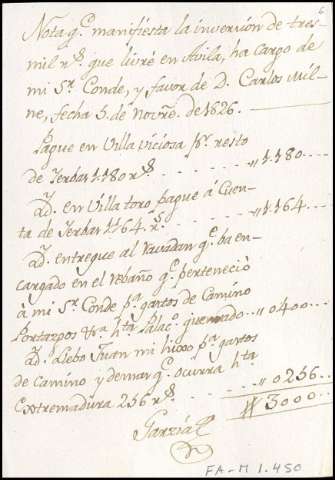 Nota q.e manifiesta la inversion de tres-
mil r.s que libré en Avila, ha cargo de
mi S.r Conde, y favor de D. Carlos Mil-
ne, fecha 5. de Novre. de 1826.
Pague en Villaviciosa p.r resto
de Yerbas 1.180 r.s . . . . . . . 1.180...
Yd. en Villatoro pague á Cuen-
ta de Yerbas 1.164. r.s . . . . . 1.164...
Yd. entregue al q.e ba en-
cargado en el Rebaño q.e perteneció
á mi S.r Conde p.a gastos de Camino
Portazgos &.a h.ta Palac.o quemado 0400...
Yd. Llebó Juan mi p.a gastos
de camino y demas q.e ocurra h.ta
Extremadura 256 r.s . . . . . 0256...
3000...
Garzia
FA-M 1.450